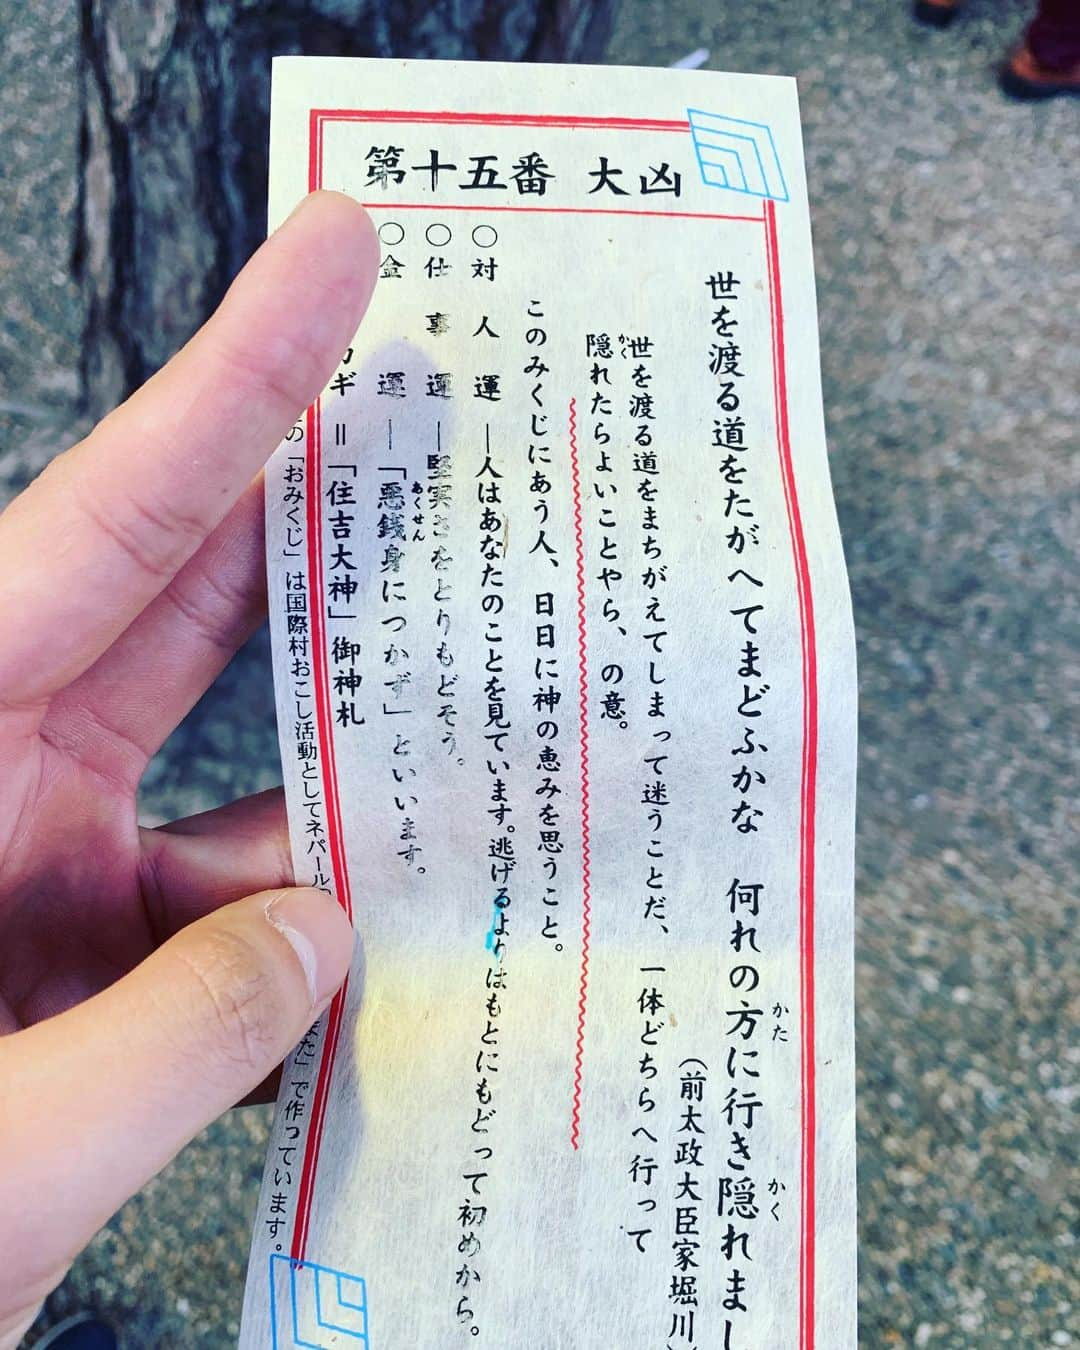 第十五番 大凶
世を渡る道をたがへてまどふかな 何れの方に行き隠れまし
かた
かく
(前太政大臣家堀川)
世を渡る道をまちがえてしまって迷うことだ、一体どちらへ行って
隠れたらよいことやら、の意。
かく
このみくじにあう人、日日に神の恵みを思うこと。
○対人運―人はあなたのことを見ています。逃げるよりはもとにもどって初めから。
○仕事運―堅実さをとりもどそう。
○金運―「悪銭身につかず」といいます。
あくせん
カギ=「住吉大神」御神札
の「おみくじ」は国際村おこし活動としてネパール
で作っています。